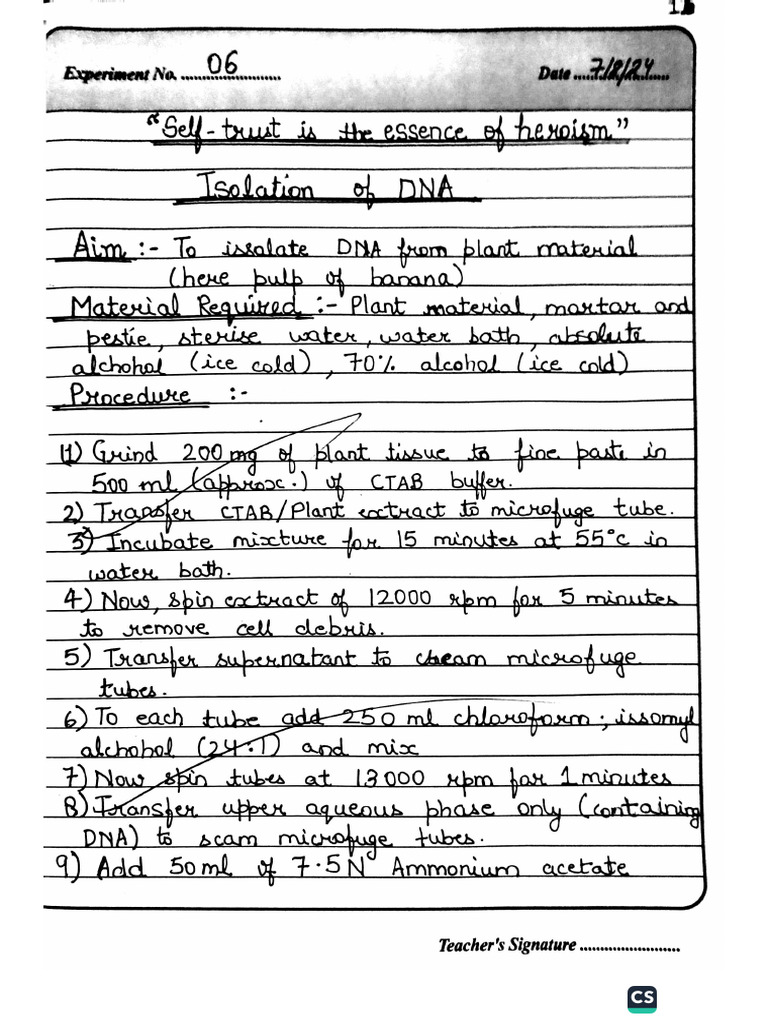 Experiment No. ......06......... Date ....7/2/24....
"Self-trust is the essence of heroism"
Isolation of DNA
Aim :- To issolate DNA from plant material
(here pulp of banana)
Material Required :- Plant material, mortar and
pestie, sterise water, water bath, absolute
alchohol (ice cold), 70% alcohol (ice cold)
Procedure :-
(1) Grind 200 mg of plant tissue to fine paste in
500 ml (approx.) of CTAB buffer.
2) Transfer CTAB/Plant extract to microfuge tube.
3) Incubate mixture for 15 minutes at 55°c in
water bath.
4) Now, spin extract of 12000 rpm for 5 minutes
to remove cell debris.
5) Transfer supernatant to microfuge
tubes.
6) To each tube add 250 ml chloroform; issomyl
alchohol (24:1) and mix
7) Now spin tubes at 13000 rpm for 1 minutes
8) Transfer upper aqueous phase only (containing
DNA) to scam microfuge tubes.
9) Add 50 ml of 7.5N Ammonium acetate
Teacher's Signature .........................
CS